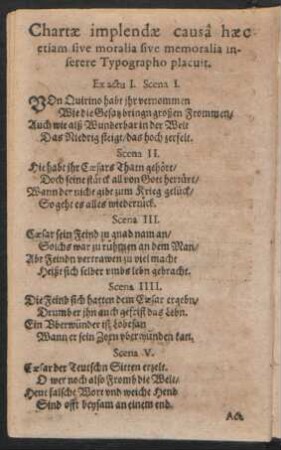 Chartæ implendæ causâ hæc
etiam sive moralia sive memoralia in-
serere Typographo placuit.
Ex actu I. Scena I.
VOn Quirino habt jhr vernommen
Wie die Gesatz bringn großen Frommen/
Auch wie alß Wunderbar in der Welt
Das Niedrig steigt/ das hoch zerfelt.
Scena II.
Hie habt jhr Cæsars Thatn gehört/
Doch seine stärck all von Gott herrürt/
Wann der nicht gibt zum Krieg gelück/
So geht es alles wiederrück.
Scena III.
Cæsar sein Feind zu gnad nam an/
Solchs war zu rühmen an dem Man/
Abr Feindn vertrawen zu viel macht
Heißt sich selber vmbs lebn gebracht.
Scena IIII.
Die Feind sich hatten dem Cæsar ergebn/
Drumb er jhn auch gefrist das Lebn.
Ein Vberwünder ist lobesan
Wann er sein Zorn vberwünden kan.
Scena V.
Cæsar der Teutschn Sitten erzelt.
O wer noch also Fromb die Welt/
Heut falsche Wort vnd weiche Hend
Sind offt beysam an einem end.